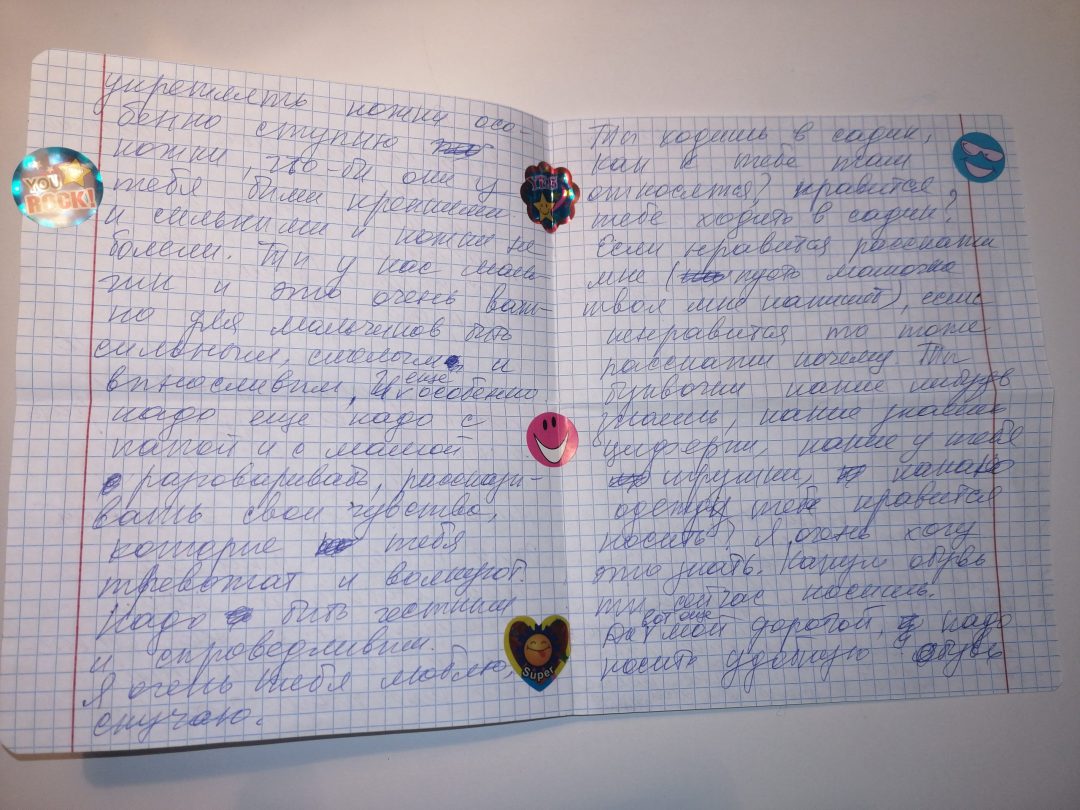 укреплять ножки осо-
бенно ступню
ножки, что-бы они у
тебя были крепкими
и сильными и ножки не
болели. Ты у нас маль-
чик и это очень важ-
но для мальчиков быть
сильным, смелым и
выносливым, И еще особенно
надо еще надо с
папой и с мамой
разговаривать, рассказы-
вать свои чувства,
которые тебя
тревожат и волнуют.
Надо быть честным
и справедливым.
Я очень тебя люблю,
скучаю.
Ты ходишь в садик,
как к тебе там
относятся, нравится
тебе ходить в садик?
Если нравится расскажи
мне (пусть мамочка
твоя мне напишет), если
ненравится то тоже
расскажи почему. Ты
буквочки какие нибудь
знаешь, какие знаешь
циферки, какие у тебя
игрушки, какую
одежду тебе нравится
носить? Я очень хочу
это знать. Какую обувь
ты сейчас носишь.
вот еще мой дорогой, надо
носить удобную обувь
YOU ROCK!
Super